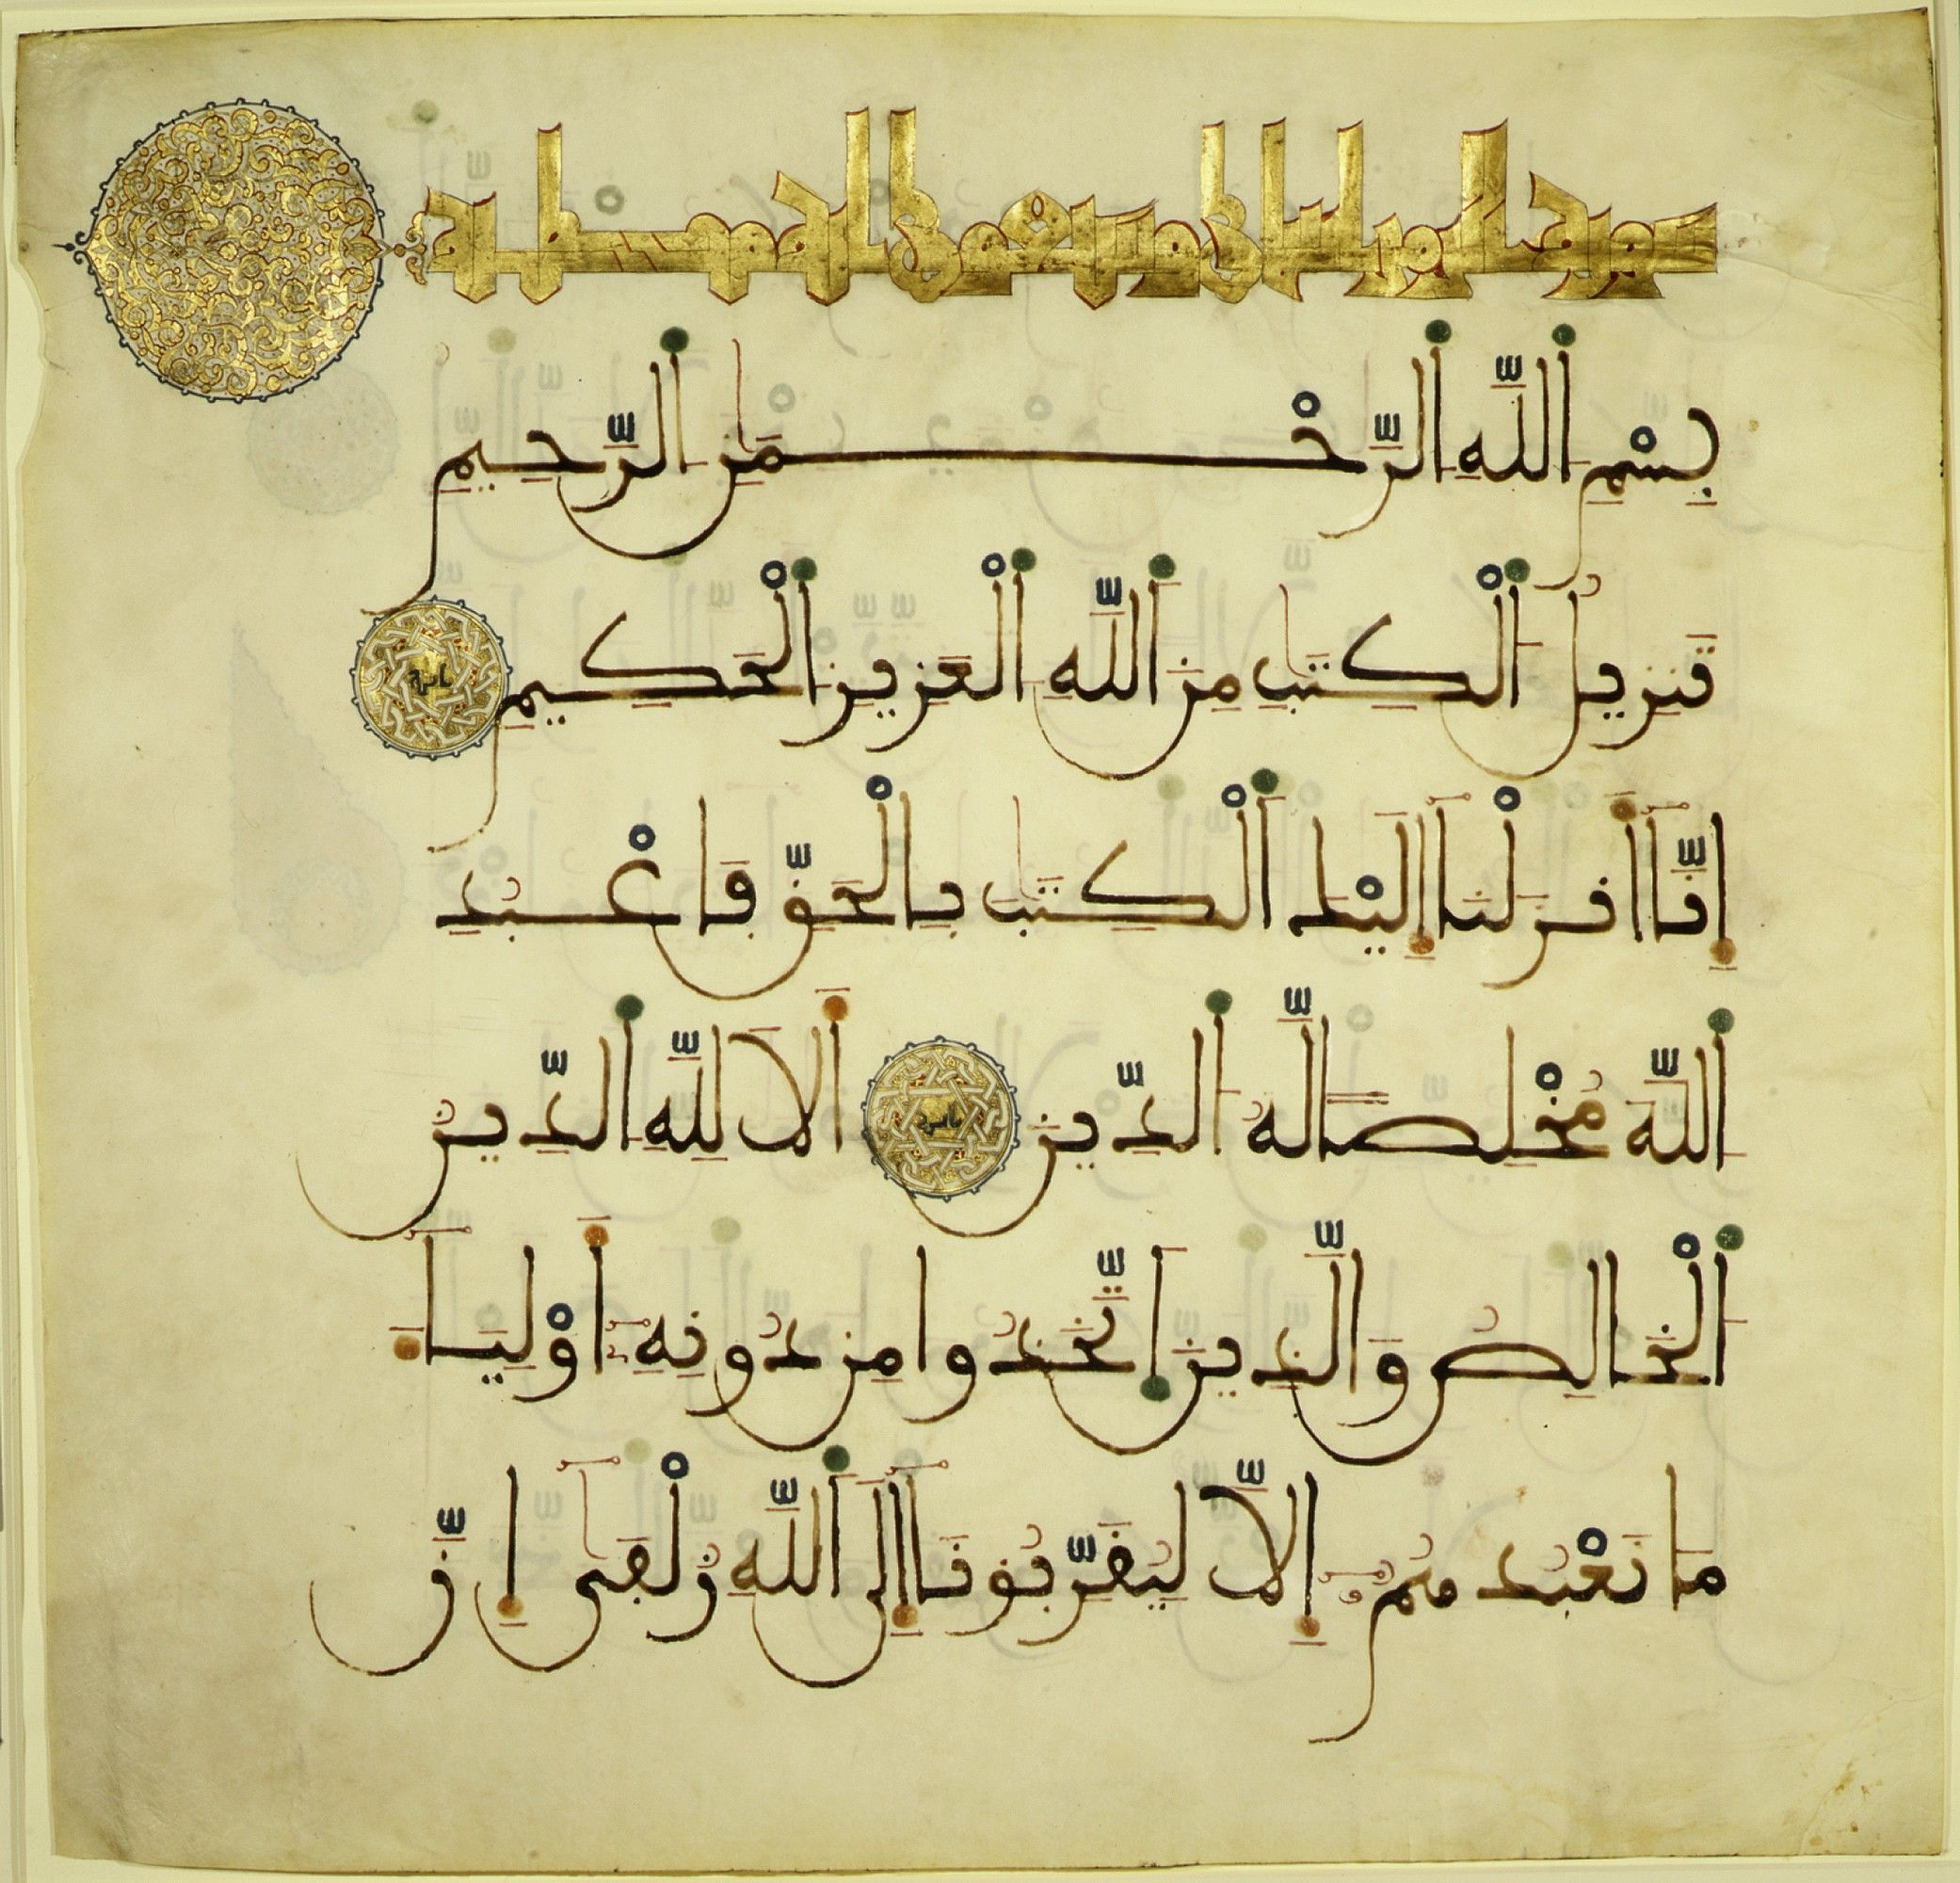 سورة الزمر
بِسْمِ اللَّهِ الرَّحْمَٰنِ الرَّحِيمِ
تَنزِيلُ الْكِتَٰبِ مِنَ اللَّهِ الْعَزِيزِ الْحَكِيمِ اية
إِنَّا أَنزَلْنَا إِلَيْكَ الْكِتَٰبَ بِالْحَقِّ فَاعْبُدِ
اللَّهَ مُخْلِصًا لَّهُ الدِّينَ اية أَلَا لِلَّهِ الدِّينُ
الْخَالِصُ وَالَّذِينَ اتَّخَذُوا مِن دُونِهِ أَوْلِيَاءَ
مَا نَعْبُدُهُمُ إِلَّا لِيُقَرِّبُونَا إِلَى اللَّهِ زُلْفَىٰ إِنَّ